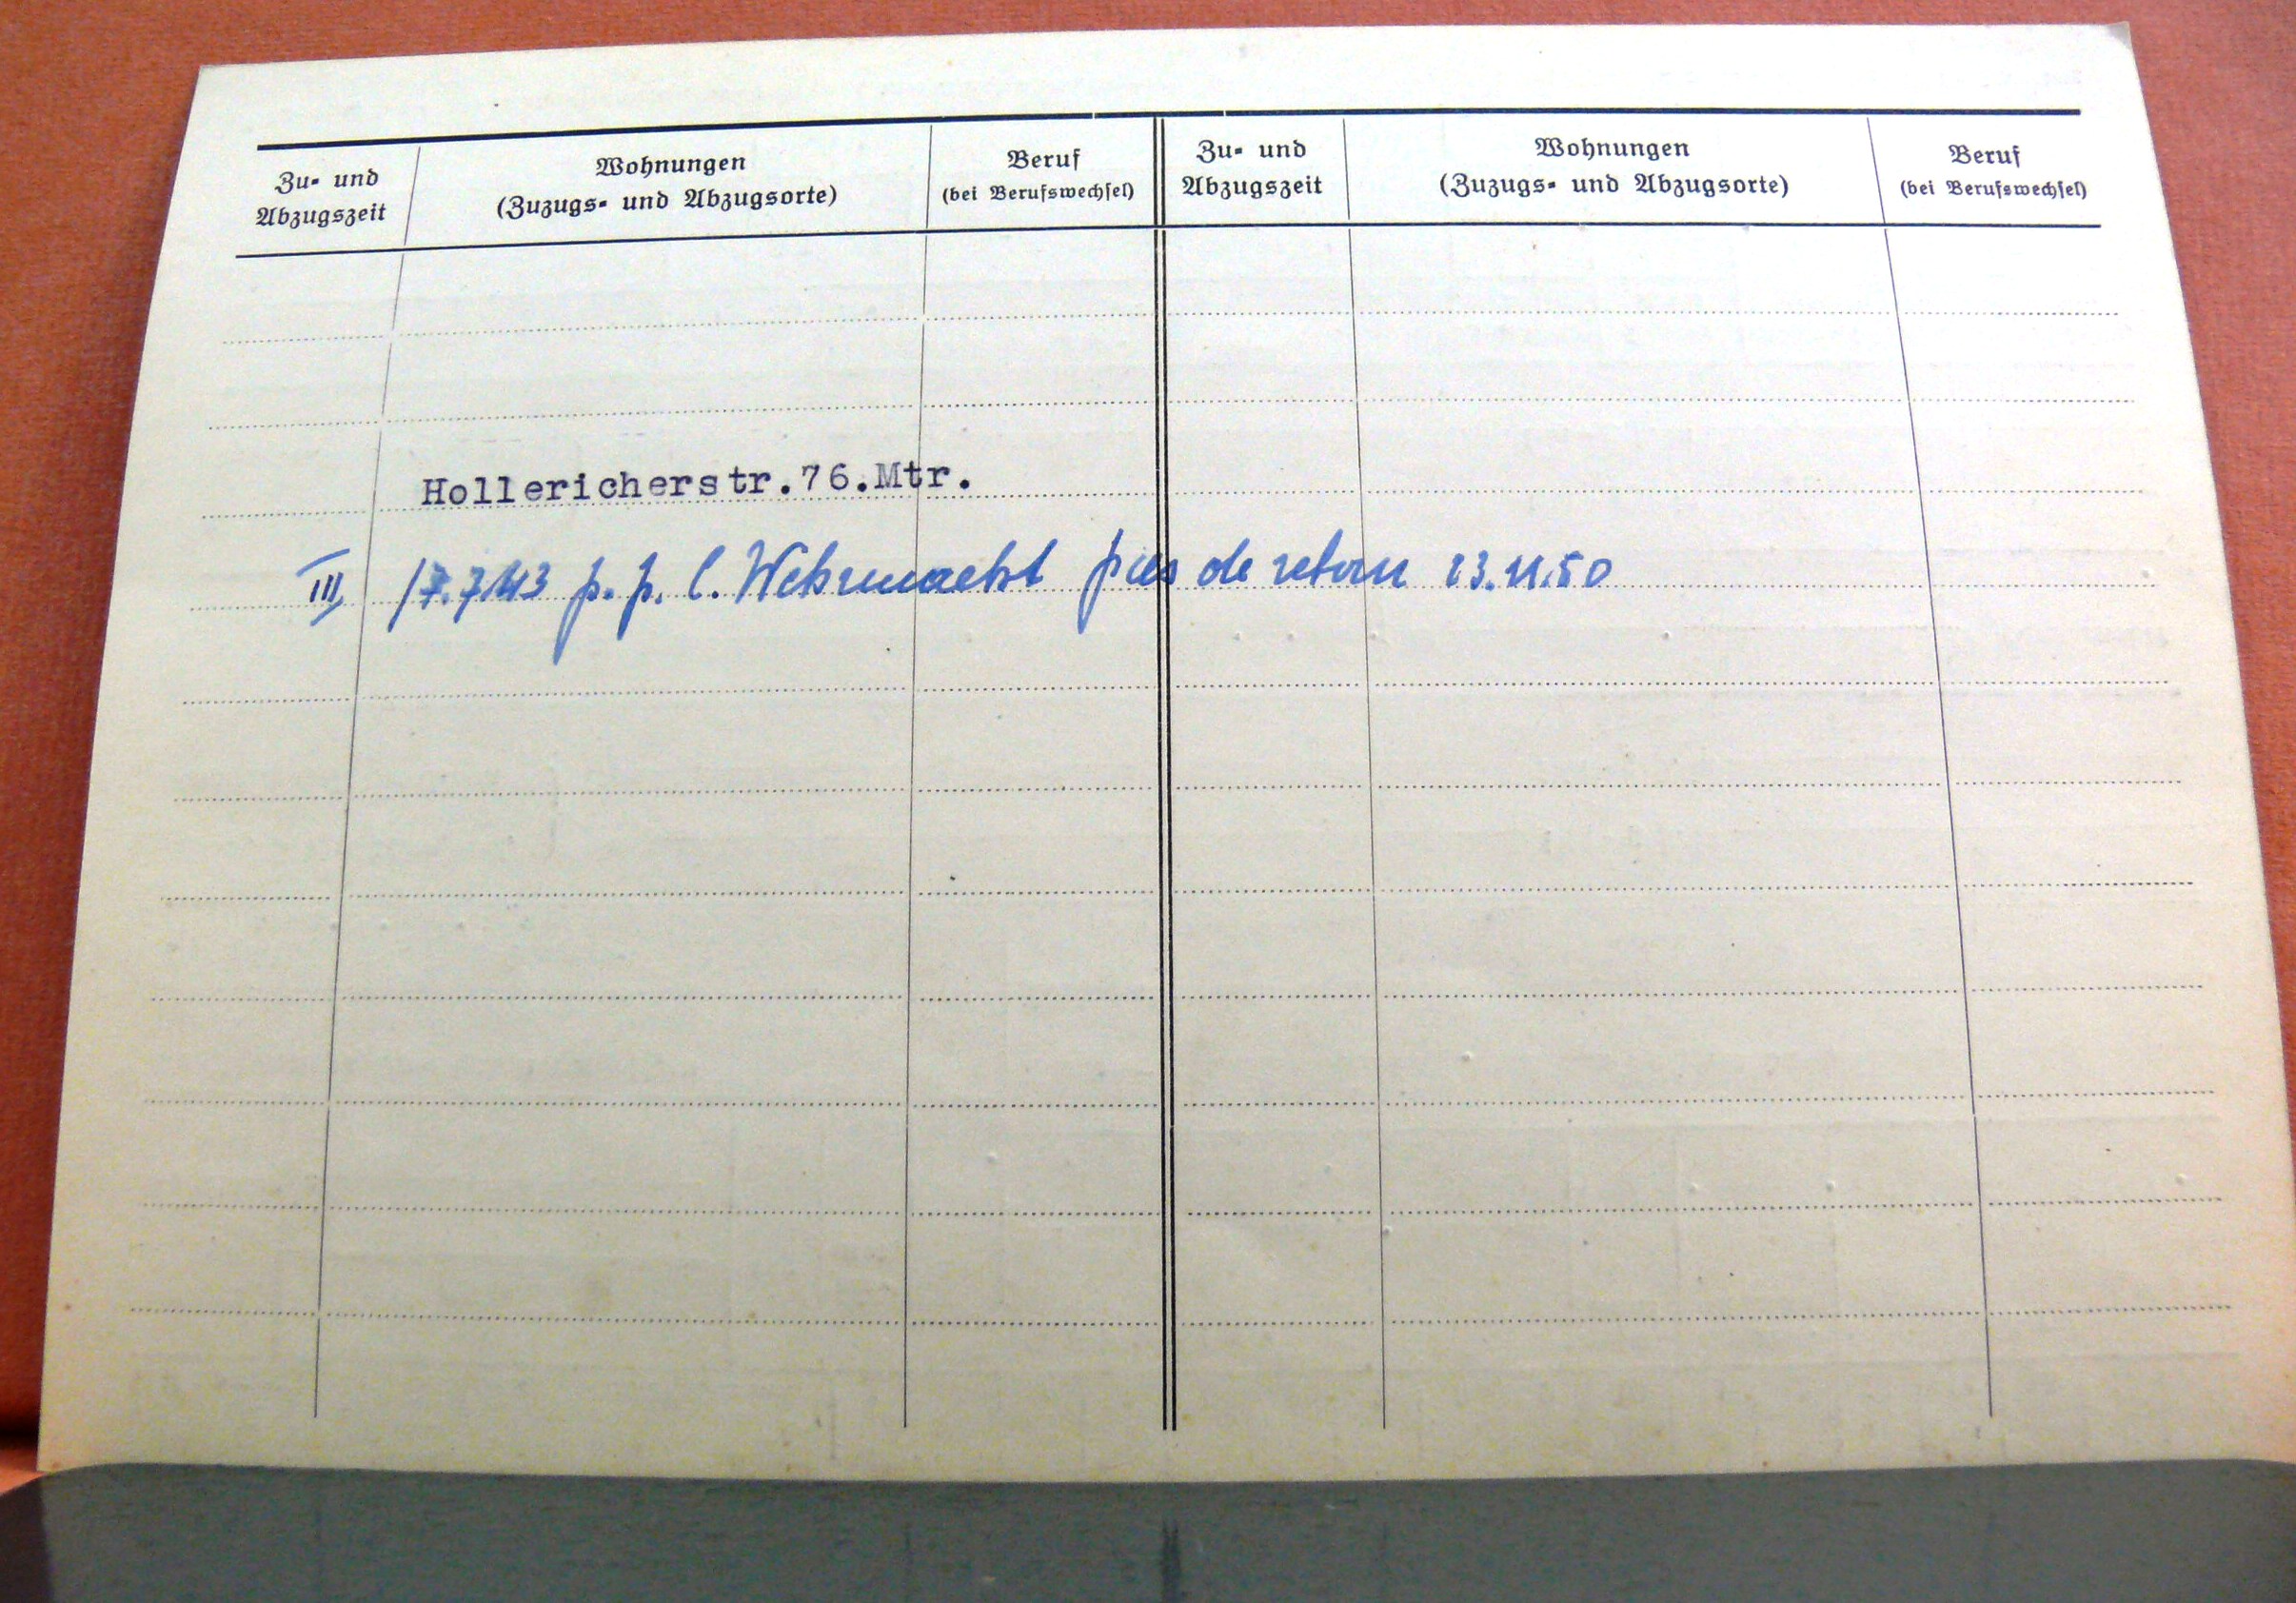 Zu- und Abzugszeit
Wohnungen
(Zuzugs- und Abzugsorte)
Beruf
(bei Berufswechsel)
Zu- und
Abzugszeit
Wohnungen
(Zuzugs- und Abzugsorte)
Beruf
(bei Berufswechsel)
Hollericherstr.76.Mtr.
III 17.7.43 p. p. l. Wehrmacht pas de retour 23.11.50